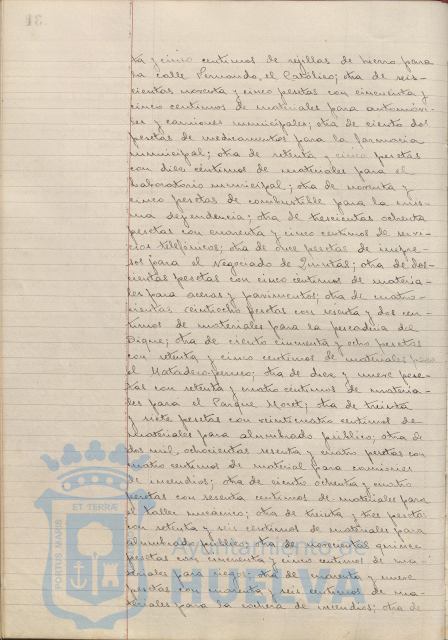 ta y cinco centimos de rejillas de hierro para
la calle Fernando el Católico; otra de seis-
cientas noventa y cinco pesetas con cincuenta y
cinco centimos de materiales para automóvi-
les y camiones municipales; otra de ciento dos
pesetas de medicamentos para la farmacia
municipal; otra de setenta y cinco pesetas
con diez centimos de materiales para el
Laboratorio municipal; otra de noventa y
cinco pesetas de combustible para la mis-
ma dependencia; otra de trescientas ochenta
pesetas con cuarenta y cinco centimos de servi-
cios telefónicos; otra de once pesetas de impre-
sos para el Negociado de Quintas; otra de dos-
cientas pesetas con cinco centimos de materia-
les para aceras y pavimentos; otra de cuatro-
cientas veintiocho pesetas con sesenta y dos cen-
timos de materiales para la pescaderia del
Dique; otra de ciento cincuenta y ocho pesetas
con setenta y cinco centimos de materiales para
el Matadero; otra de diez y nueve pese-
tas con setenta y cuatro centimos de materia-
les para el Parque Moret; otra de treinta
y siete pesetas con veinticuatro centimos de
materiales para alumbrado público; otra de
dos mil, ochocientas sesenta y cuatro pesetas con
cuatro centimos de material para camiones
de incendios; otra de ciento ochenta y cuatro
pesetas con sesenta centimos de materiales para
el taller mecánico; otra de treinta y tres pesetas
con setenta y seis centimos de materiales para
alumbrado público; otra de novecientas quince
pesetas con cincuenta y cinco centimos de ma-
teriales para riego; otra de cuarenta y nueve
pesetas con cuarenta y seis centimos de ma-
teriales para la cochera de incendios; otra de
PORTUS MARIS ET TERRÆ
Ayuntamiento de
HUELVA